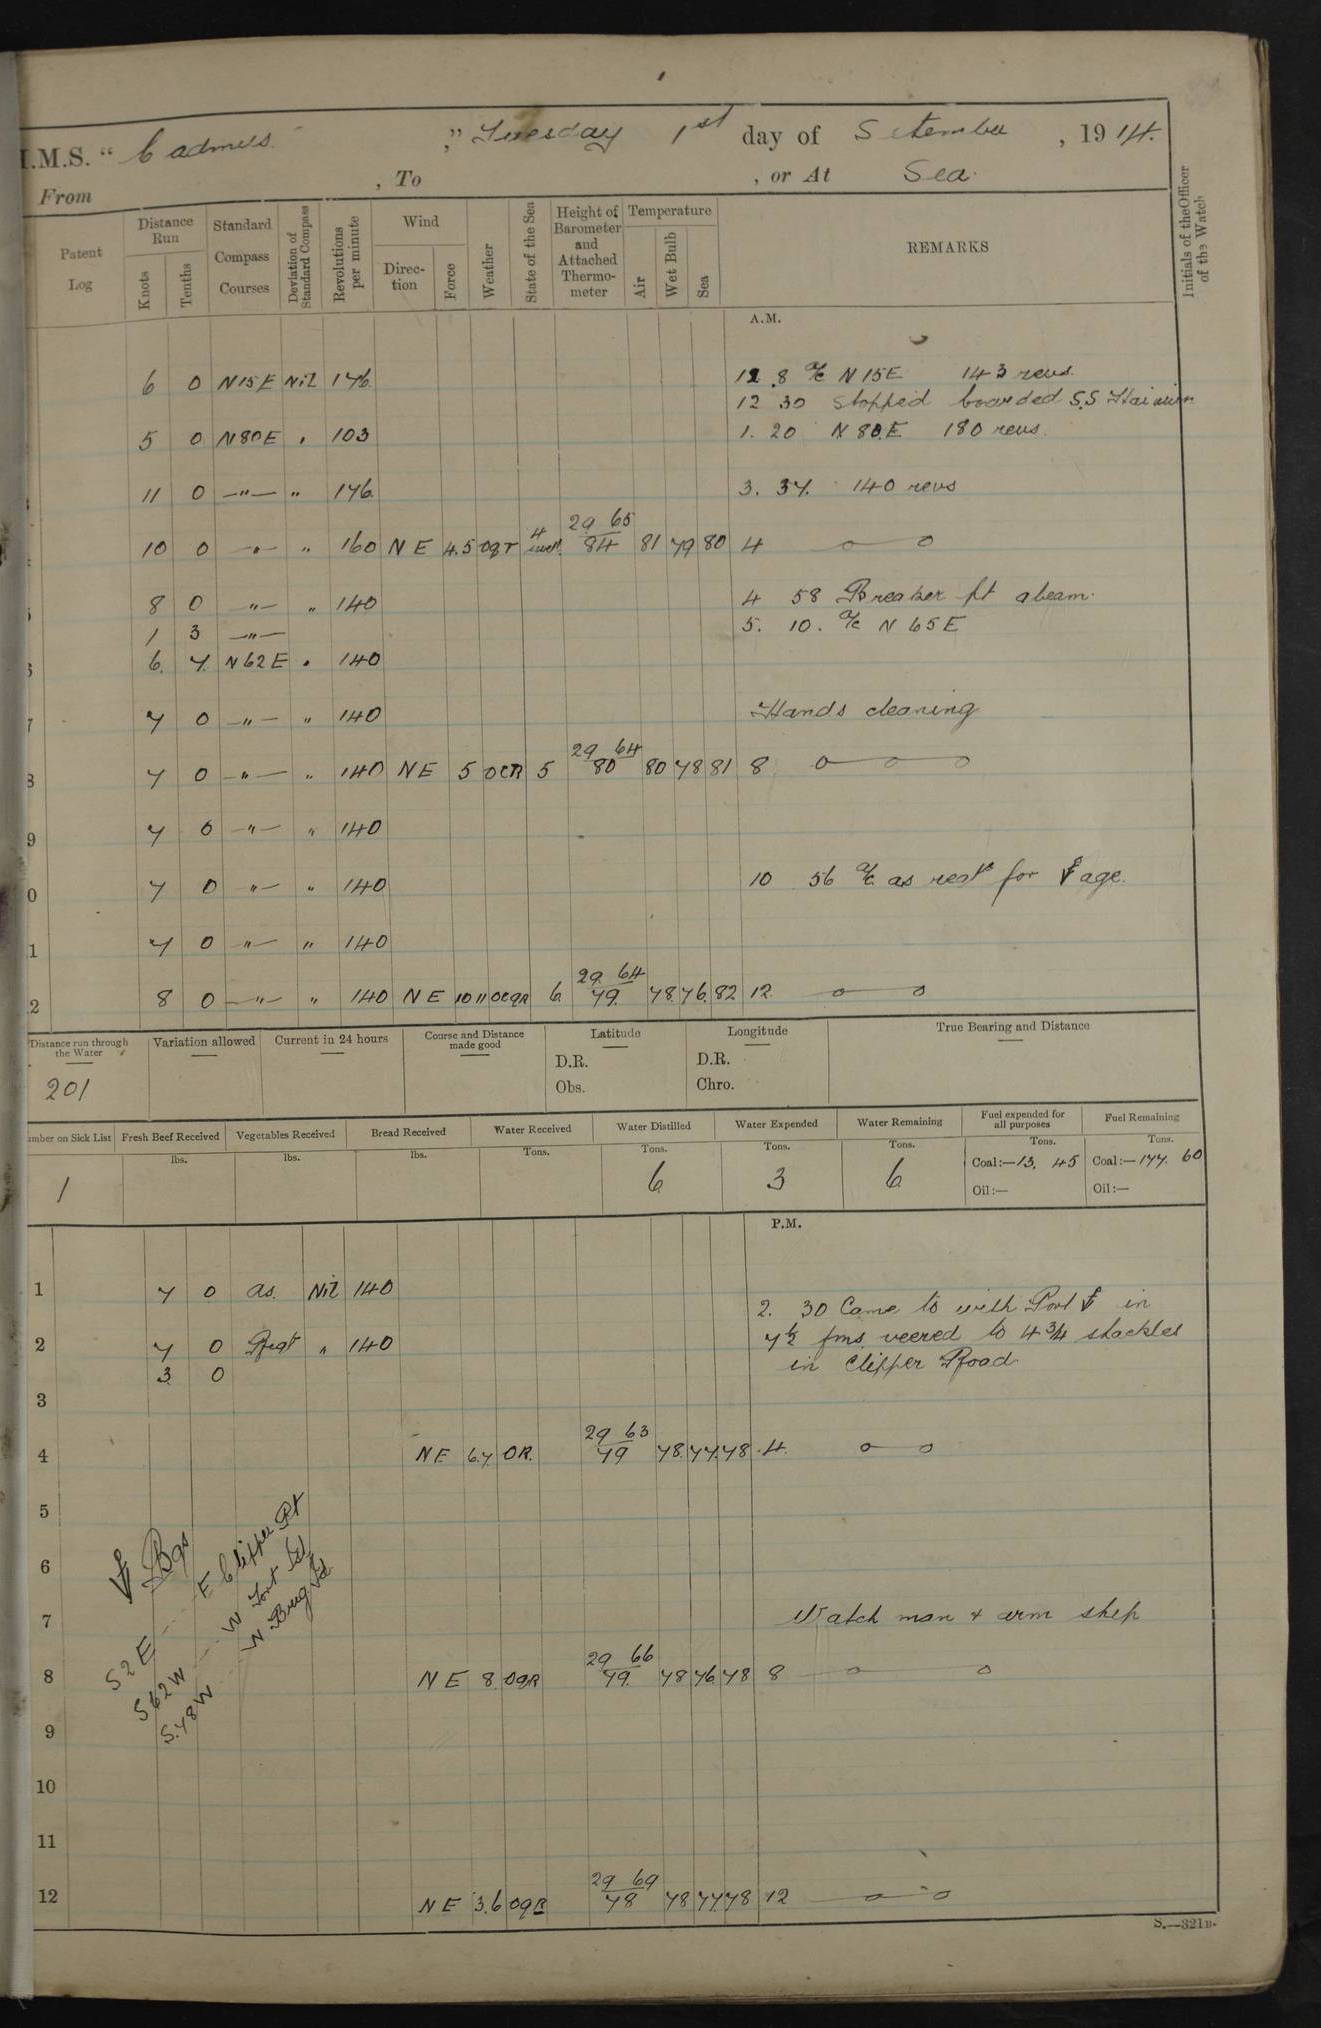 I.M.S. " Cadmus ," Tuesday 1st day of Setember , 1914.
From , To , or At Sea.
Patent Log
Distance Run
Knots Tenths
Standard Compass Courses
Deviation of Standard Compass
Revolutions per minute
Wind
Direction Force
Weather
State of the Sea
Height of Barometer and Attached Thermometer
Temperature
Air Wet Bulb Sea
REMARKS
Initials of the Officer of the Watch
A.M.
6 0 N15E Nil 176 12 .8 a/c N 15E 143 revs.
12 30 Stopped boarded S.S
5 0 N80E " 103 1. 20 N 80.E 180 revs.
11 0 —"— " 176 3. 37. 140 revs
10 0 —"— " 160 NE 4.5 oqr 4 29 65 84 81 79 80 4
8 0 —"— " 140 4 58 Breaker pt abeam.
1 3 —"— 5. 10. a/c N 65E
6. 7. N62E " 140
7 0 —"— " 140 Hands cleaning
7 0 —"— " 140 NE 5 ocr 5 29 64 80 80 78 81 8
9 7 0 —"— " 140
0 7 0 —"— " 140 10 56 a/c as reqte for age.
1 7 0 —"— " 140
2 8 0 —"— " 140 NE 10 11 ocqr 6 29 64 79. 78. 76. 82 12
Distance run through the Water
201
Variation allowed
Current in 24 hours
Course and Distance made good
Latitude
D.R.
Obs.
Longitude
D.R.
Chro.
True Bearing and Distance
umber on Sick List Fresh Beef Received Vegetables Received Bread Received Water Received Water Distilled Water Expended Water Remaining Fuel expended for all purposes Fuel Remaining
lbs. lbs. lbs. Tons. Tons. Tons. Tons. Tons. Tons.
1 6 3 6 Coal:—13. 45 Coal:—177. 60
Oil:— Oil:—
P.M.
1 7 0 as. Nil 140
2. 30 Came to with Port in
2 7 0 Reqt " 140 7½ fms veered to 4¾ shackles
3 0 in Clipper Road
3
4 NE 6.7. OR. 29 63 79 78. 77. 78 4.
5
6
Bgs
S2E E Clipper Pt
S62W W Fort Id
S.78W W Brug Id
7 Watch man & arm ship
8 NE 8. oqr 29 66 79. 78 76. 78 8
9
10
11
12 NE 3.6 oqr 29 69 78 78 77. 78 12
S.—321B.